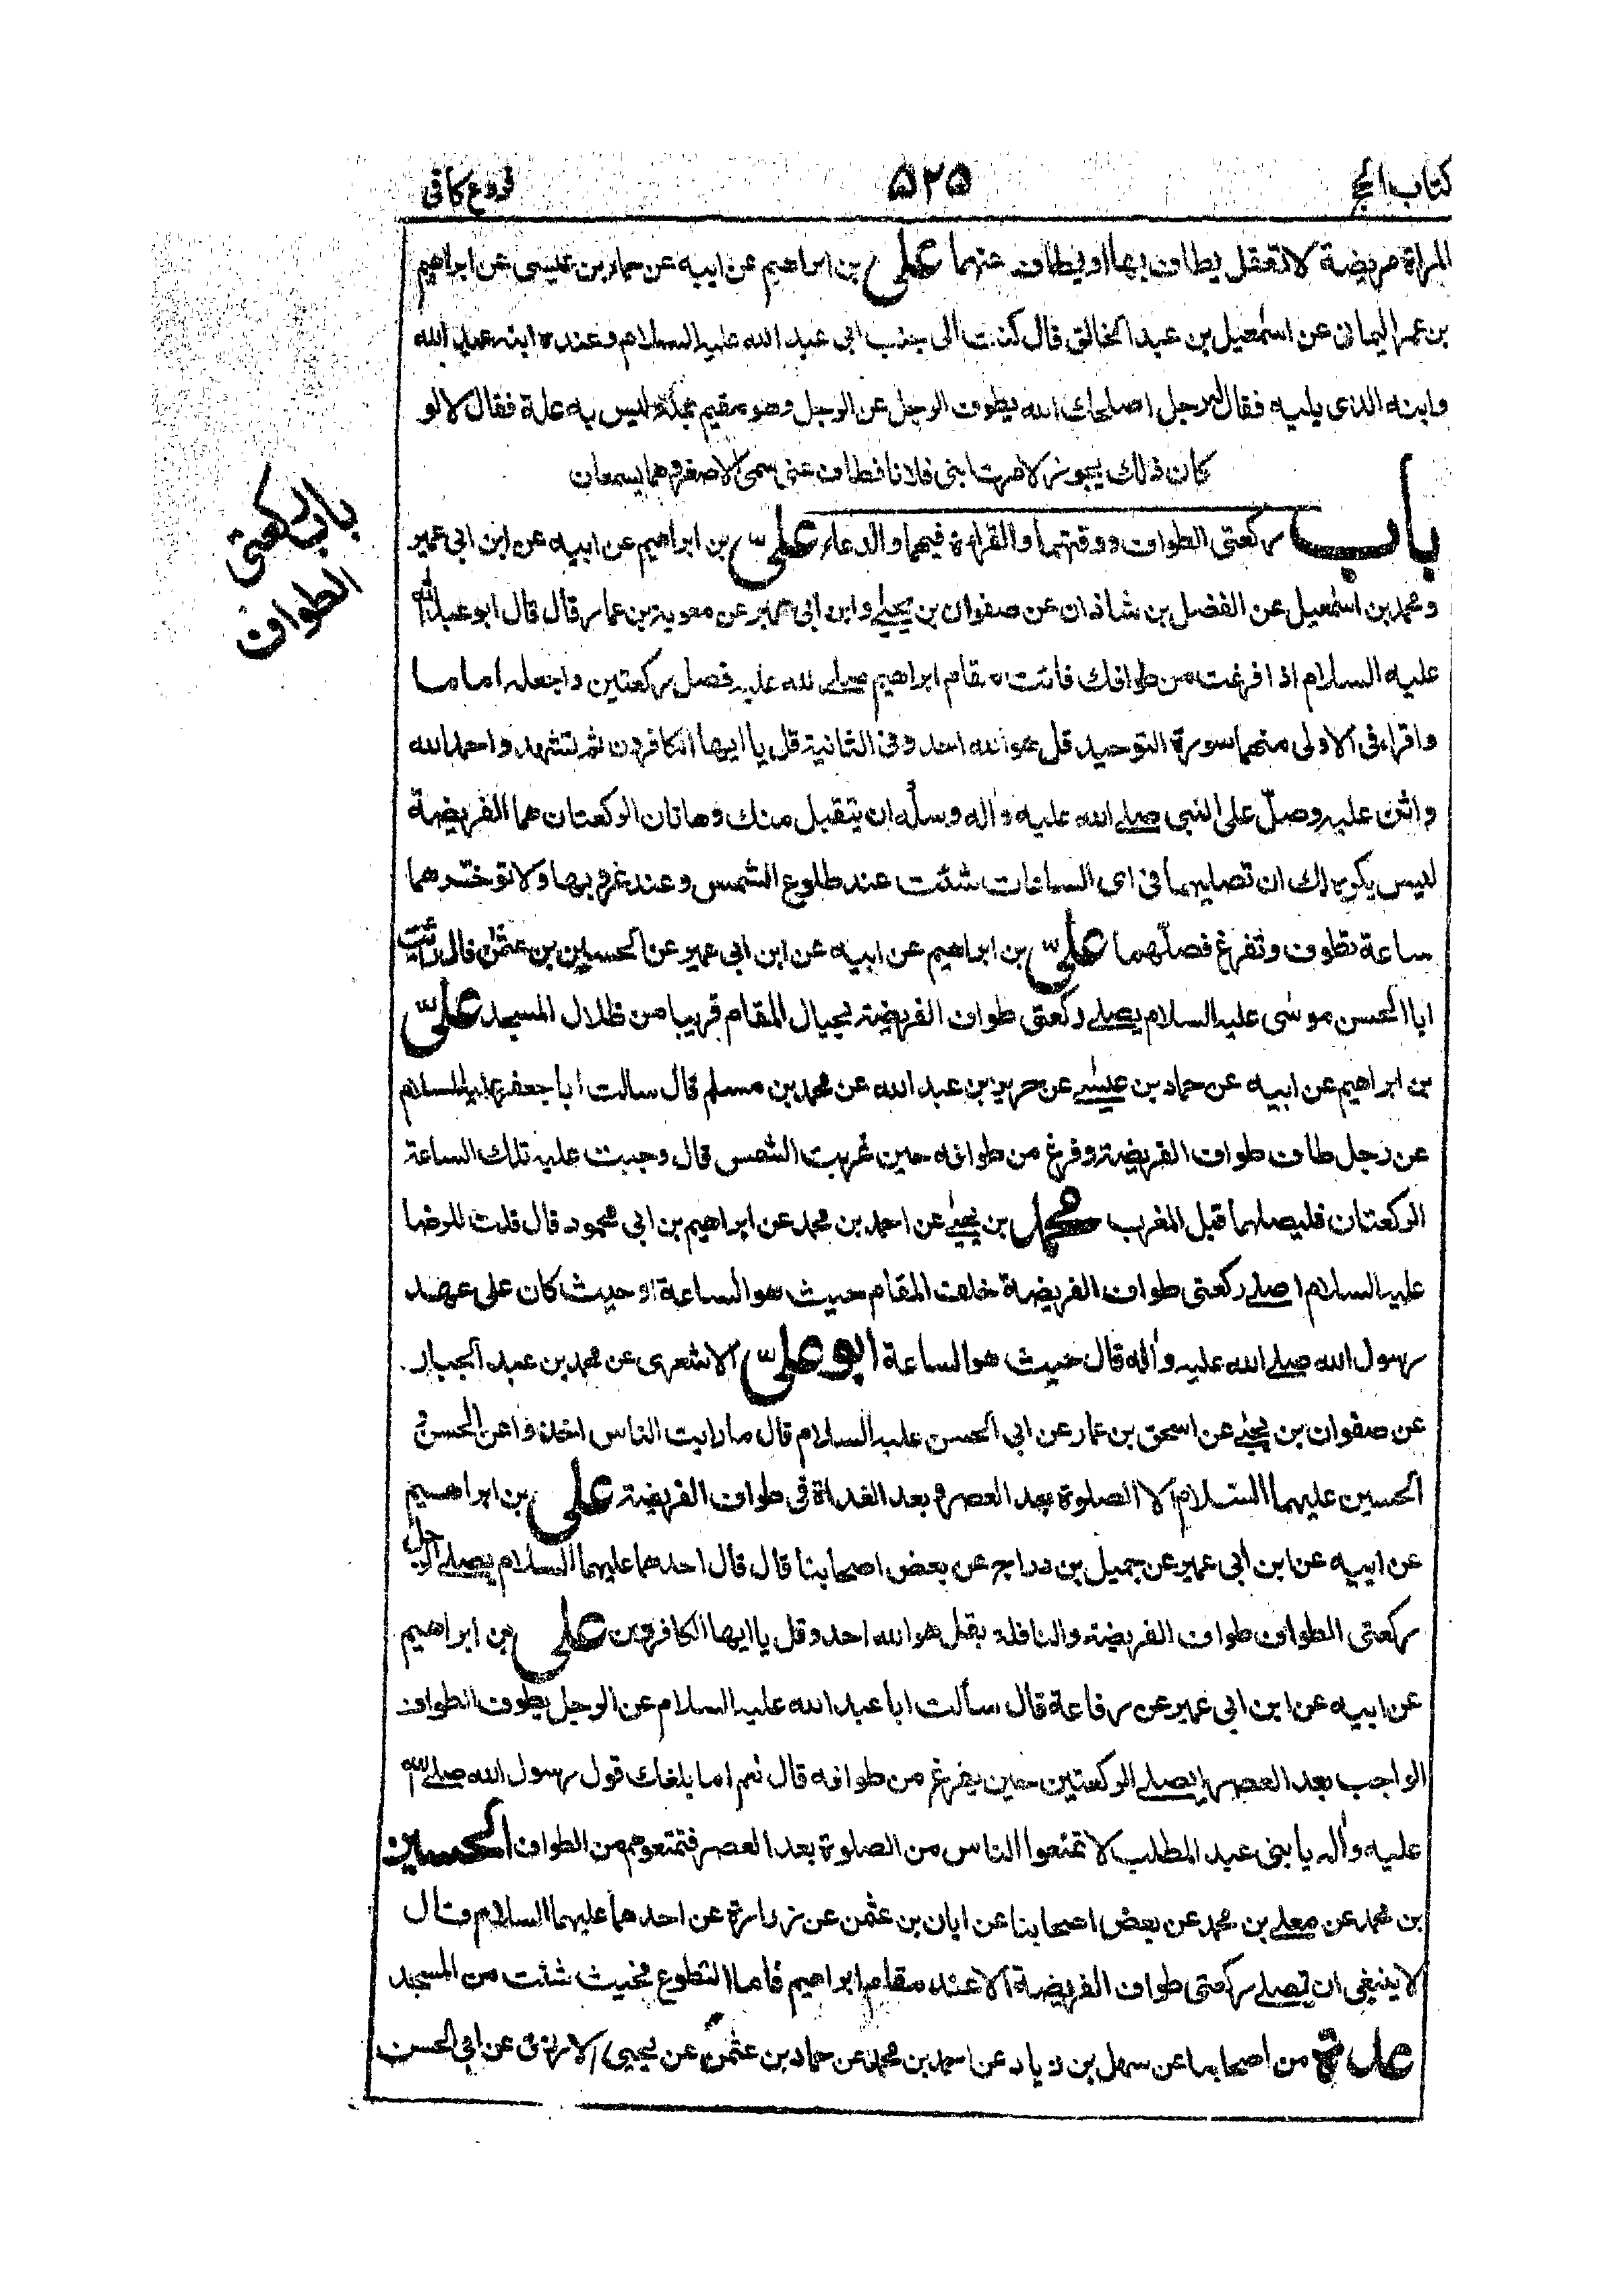 كتاب الحج
۵۲۵
فروع كافى
المراة مريضة لا تعقل يطاف بها او يطاف عنهما على بن ابراهيم عن ابيه عن حماد بن عيسى عن ابراهيم
بن عمر اليمانى عن اسمعيل بن عبد الخالق قال كنت الى جنب ابى عبد الله عليه السلام وعنده ابنه عبد الله
وابنه الذى يليه فقال له رجل اصلحك الله يطوف الرجل عن الرجل وهو مقيم بمكة ليس به علة فقال لا لو
كان ذلك يجوز لامرت ابنى فلانا فطاف عنى سمى الاصغر وهما يسمعان
باب ركعتى الطواف ووقتهما والقراءة فيهما والدعاء على بن ابراهيم عن ابيه عن ابن ابى عمير
ومحمد بن اسمعيل عن الفضل بن شاذان عن صفوان بن يحيى وابن ابى عمير عن معوية بن عمار قال قال ابو عبد الله
عليه السلام اذا فرغت من طوافك فائت مقام ابراهيم صلى الله عليه فصل ركعتين واجعله اماما
واقراء فى الاولى منهما سورة التوحيد قل هو الله احد وفى الثانية قل يا ايها الكافرون ثم تشهد واحمد الله
واثن عليه وصلّ على النبى صلى الله عليه واله وسله ان يتقبل منك وهاتان الركعتان هما الفريضة
ليس يكره لك ان تصليهما فى اى الساعات شئت عند طلوع الشمس وعند غروبها ولا تؤخرهما
ساعة تطوف وتفرغ فصلّهما علىّ بن ابراهيم عن ابيه عن ابن ابى عمير عن الحسين بن عثمن قال رايت
ابا الحسن موسى عليه السلام يصلى ركعتى طواف الفريضة بحيال المقام قريبا من ظلال المسجد علىّ
بن ابراهيم عن ابيه عن حماد بن عيسى عن حريز بن عبد الله عن محمد بن مسلم قال سالت ابا جعفر عليه السلام
عن رجل طاف طواف الفريضة وفرغ من طوافه حين غربت الشمس قال وجبت عليه تلك الساعة
الركعتان فليصلهما قبل المغرب محمد بن يحيى عن احمد بن محمد عن ابراهيم بن ابى محمود قال قلت للرضا
عليه السلام اصلى ركعتى طواف الفريضة خلف المقام حيث هو الساعة او حيث كان على عهد
رسول الله صلى الله عليه واله قال حيث هو الساعة ابو علىّ الاشعرى عن محمد بن عبد الجبار
عن صفوان بن يحيى عن اسحق بن عمار عن ابى الحسن عليه السلام قال ما رايت الناس اخذوا عن الحسن و
الحسين عليهما السّلام الا الصلوة بعد العصر وبعد الغداة فى طواف الفريضة على بن ابراهيم
عن ابيه عن ابن ابى عمير عن جميل بن دراج عن بعض اصحابنا قال قال احدهما عليهما السلام يصلى الرجل
ركعتى الطواف طواف الفريضة والنافلة بقل هو الله احد وقل يا ايها الكافرون على بن ابراهيم
عن ابيه عن ابن ابى عمير عن رفاعة قال سألت ابا عبد الله عليه السلام عن الرجل يطوف الطواف
الواجب بعد العصر ايصلى الركعتين حين يفرغ من طوافه قال نعم اما بلغك قول رسول الله صلى الله
عليه واله يا بنى عبد المطلب لا تمنعوا الناس من الصلوة بعد العصر فتمنعوهم من الطواف الحسين
بن محمد عن معلى بن محمد عن بعض اصحابنا عن ابان بن عثمن عن زرارة عن احدهما عليهما السلام قال
لا ينبغى ان تصلى ركعتى طواف الفريضة الا عند مقام ابراهيم فاما التطوع فحيث شئت من المسجد
عدة من اصحابنا عن سهل بن زياد عن احمد بن محمد عن حماد بن عثمن عن يحيى الازرق عن ابى الحسن
باب ركعتى
الطواف